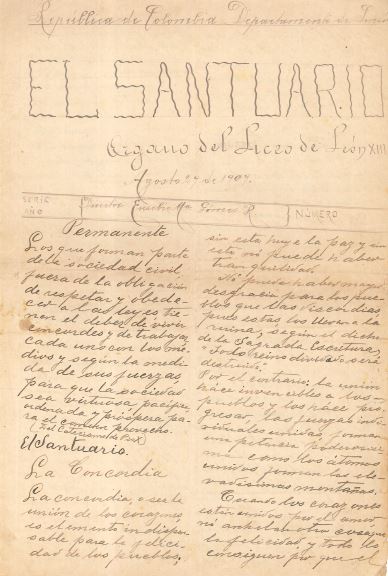 República de Colombia Departamento de
EL SANTUARIO
Organo del Liceo de León XIII
Agosto 27 de 1907.
SERIE
AÑO
Director Eusebio Ma. Gómez R.
NÚMERO
Permanente
Los que forman parte
de la sociedad civil,
fuera de la obligación
de respetar y obede-
cer a la ley es tie-
nen el deber de vivir
concordes y de trabajar
cada uno con los me-
dios y según la medi-
da de sus fuerzas,
para que la sociedad
sea virtuosa, pacífica,
ordenada y próspera pa-
ra el común provecho.
El Santuario.
La Concordia
La concordia, o sea la
unión de los corazones,
es elemento indispen-
sable para la felici-
dad de los pueblos;
sin esta huye la paz y sin
esta no puede haber
tranquilidad.
No puede haber mayor
desgracia para los pue-
blos que las discordias,
pues estas los llevan a la
ruina, según el dicho
de la Sagrada Escritura,
"Todo reino dividido será
destruido."
Por el contrario, la unión
hace invencibles a los
pueblos y los hace pro-
gresar, las
unidas, forman
una
como los átomos
unidos forman las ele-
vadísimas montañas.
Cuando los corazones
están unidos por el amor,
no anhelan otra cosa que
la felicidad, y todo lo
consiguen por que el